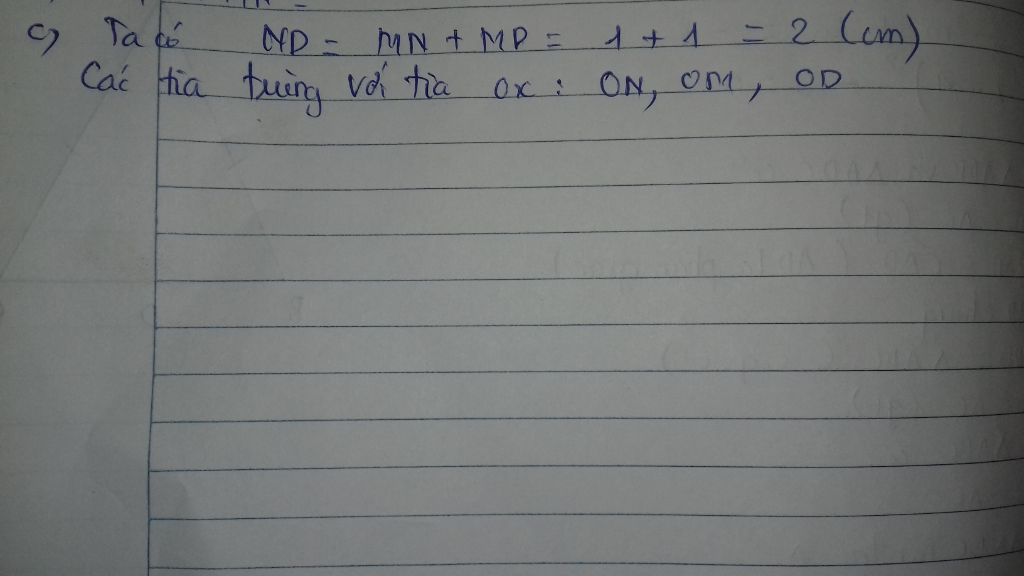 c) Ta có ND = MN + MD = 1 + 1 = 2 (cm)
Các tia trùng với tia ox : ON, OM, OD